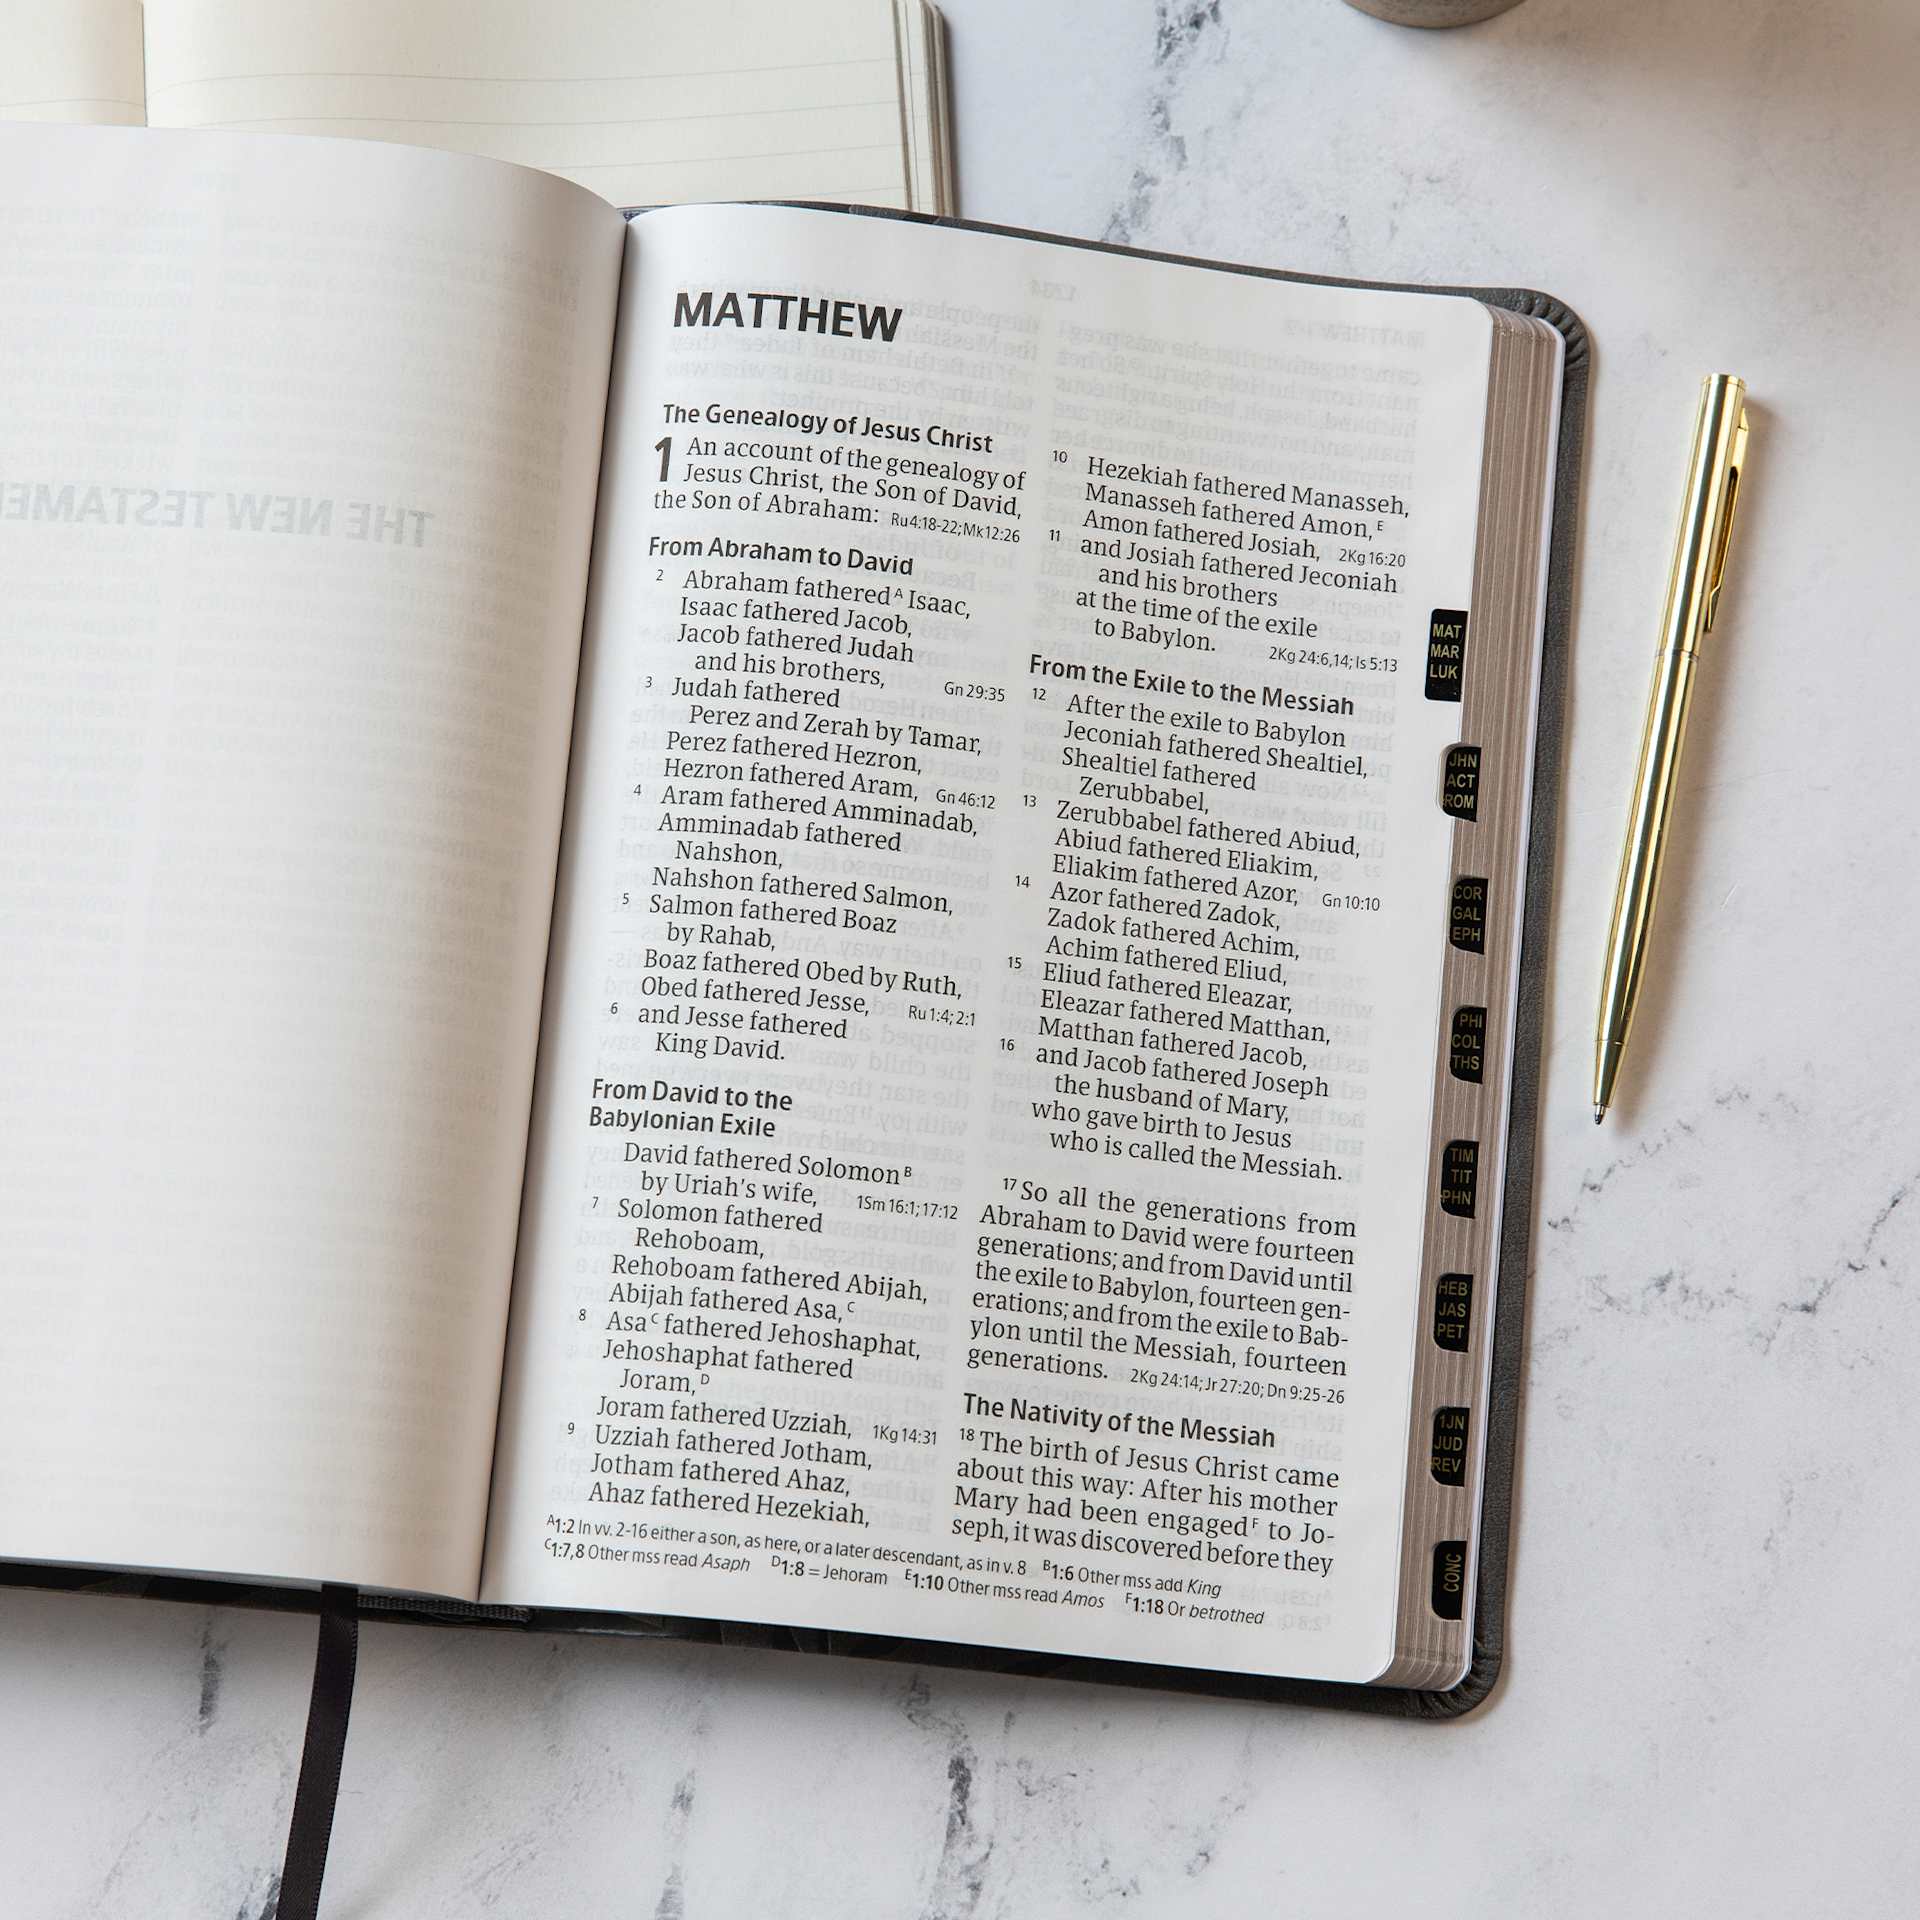 MATTHEW
The Genealogy of Jesus Christ
1 An account of the genealogy of
Jesus Christ, the Son of David,
the Son of Abraham: Ru 4:18-22; Mk 12:26
From Abraham to David
2 Abraham fathered A Isaac,
Isaac fathered Jacob,
Jacob fathered Judah
and his brothers, Gn 29:35
3 Judah fathered
Perez and Zerah by Tamar,
Perez fathered Hezron,
Hezron fathered Aram, Gn 46:12
4 Aram fathered Amminadab,
Amminadab fathered
Nahshon,
Nahshon fathered Salmon,
5 Salmon fathered Boaz
by Rahab,
Boaz fathered Obed by Ruth,
Obed fathered Jesse, Ru 1:4; 2:1
6 and Jesse fathered
King David.
From David to the
Babylonian Exile
David fathered Solomon B
by Uriah's wife, 1Sm 16:1; 17:12
7 Solomon fathered
Rehoboam,
Rehoboam fathered Abijah,
Abijah fathered Asa, C
8 Asa C fathered Jehoshaphat,
Jehoshaphat fathered
Joram, D
Joram fathered Uzziah, 1Kg 14:31
9 Uzziah fathered Jotham,
Jotham fathered Ahaz,
Ahaz fathered Hezekiah,
10 Hezekiah fathered Manasseh,
Manasseh fathered Amon, E
Amon fathered Josiah, 2Kg 16:20
11 and Josiah fathered Jeconiah
and his brothers
at the time of the exile
to Babylon. 2Kg 24:6,14; Is 5:13
From the Exile to the Messiah
12 After the exile to Babylon
Jeconiah fathered Shealtiel,
Shealtiel fathered
Zerubbabel,
13 Zerubbabel fathered Abiud,
Abiud fathered Eliakim,
Eliakim fathered Azor, Gn 10:10
14 Azor fathered Zadok,
Zadok fathered Achim,
Achim fathered Eliud,
15 Eliud fathered Eleazar,
Eleazar fathered Matthan,
Matthan fathered Jacob,
16 and Jacob fathered Joseph
the husband of Mary,
who gave birth to Jesus
who is called the Messiah.
17 So all the generations from
Abraham to David were fourteen
generations; and from David until
the exile to Babylon, fourteen gen-
erations; and from the exile to Bab-
ylon until the Messiah, fourteen
generations. 2Kg 24:14; Jr 27:20; Dn 9:25-26
The Nativity of the Messiah
18 The birth of Jesus Christ came
about this way: After his mother
Mary had been engaged F to Jo-
seph, it was discovered before they
A 1:2 In vv. 2-16 either a son, as here, or a later descendant, as in v. 8 B 1:6 Other mss add King
C 1:7,8 Other mss read Asaph D 1:8 = Jehoram E 1:10 Other mss read Amos F 1:18 Or betrothed
MAT
MAR
LUK
JHN
ACT
ROM
COR
GAL
EPH
PHI
COL
THS
TIM
TIT
PHN
HEB
JAS
PET
1JN
JUD
REV
CONC
THE NEW TESTAMEN